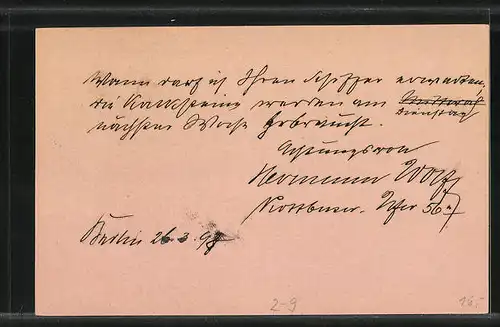 Wann darf ich Ihren Schiffer erwarten,
die Kalksteine werden am ~~Mittwoch~~ Dienstag
nächster Woche gebraucht.
Achtungsvoll
Hermann Wolff
Kottbuser-Ufer 56a
Berlin 26.3.98
2-9